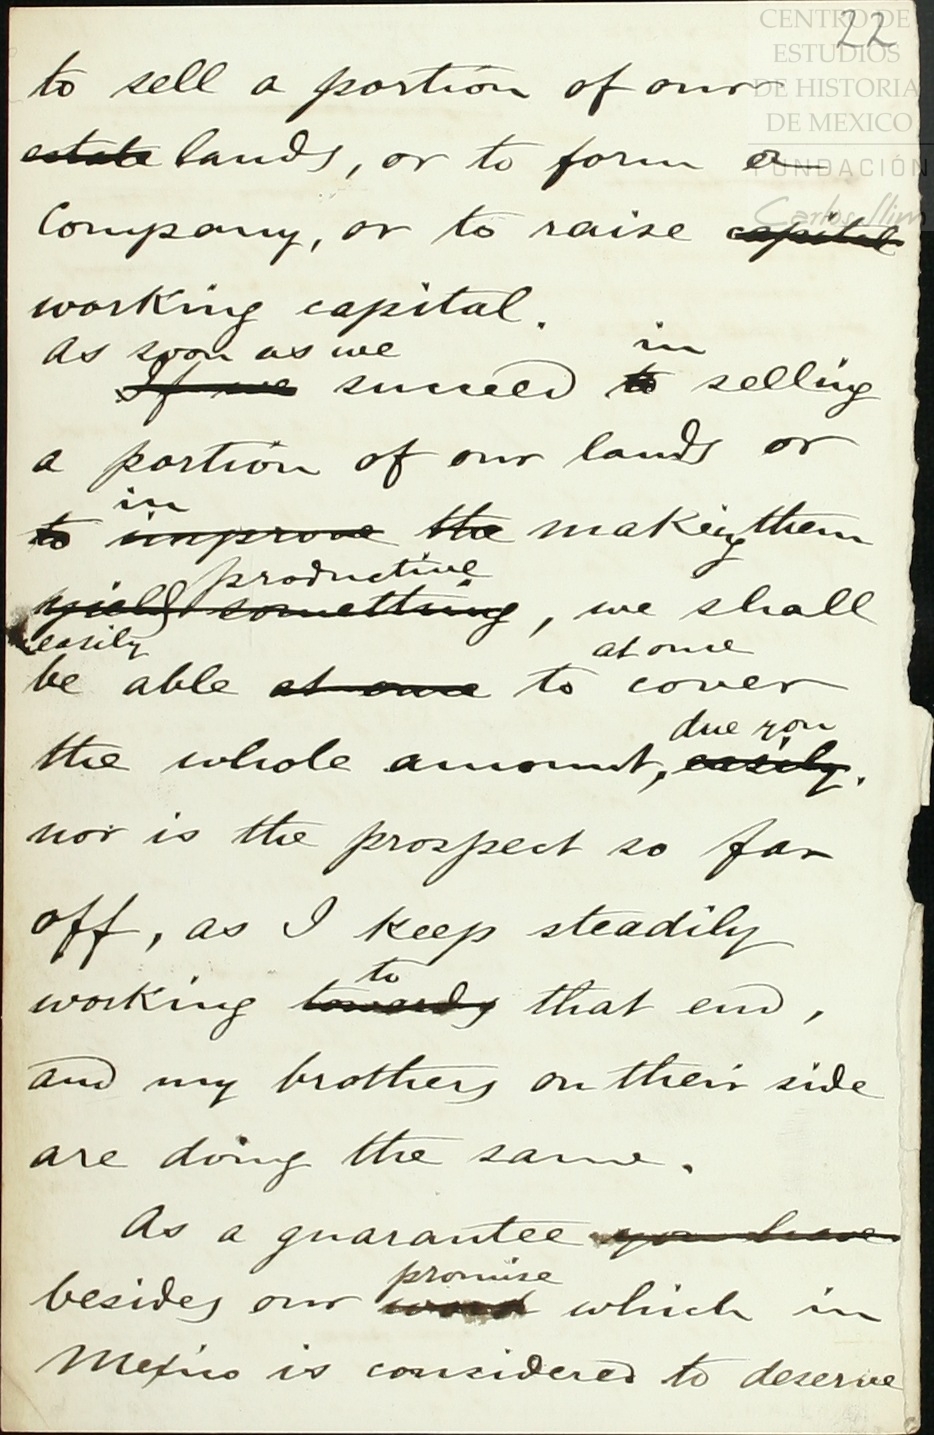 22
CENTRO DE
ESTUDIOS
DE HISTORIA
DE MEXICO
FUNDACIÓN
Carlos Slim
to sell a portion of our
estate lands, or to form a
Company, or to raise capital
working capital.
As soon as we in
If we succeed to selling
a portion of our lands or
in
to improve the making them
productive
yield something, we shall
easily at once
be able at once to cover
due you
the whole amount, easily.
nor is the prospect so far
off, as I keep steadily
to
working towards that end,
and my brothers on their side
are doing the same.
As a guarantee you have
promise
besides our word which in
Mexico is considered to deserve